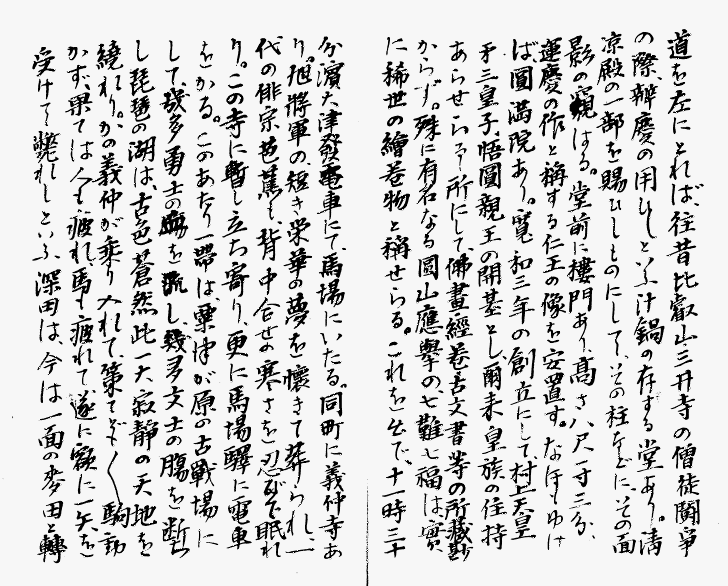 道を左にとれば、往昔比叡山三井寺の僧徒鬪爭
の際、辨慶の用ひしといふ汁鍋の存する堂あり。淸
涼殿の一部を賜ひしものにして、その柱などに、その面
影の窺はる。堂前に樓門あり、高さ八尺一寸三分、
運慶の作と稱する仁王の像を安置す。なほもゆけ
ば、圓滿院あり。寬和三年の創立にして、村上天皇
第三皇子、悟圓親王の開基とし、爾来皇族の住持
あらせらるゝ所にして、佛畫、經卷、古文書等の所藏尠
からず。殊に有名なる圓山應擧の、七難七福は、實
に稀世の繪卷物と稱せらる。これを出で、十一時三十
分、濱大津發電車にて、馬場にいたる。同町に義仲寺あ
り。旭將軍の、短き榮華の夢を懷きて葬られ、一
代の俳宗芭蕉も、背中合せの寒さを忍びて眠れ
り。この寺に暫し立ち寄り、更に馬場驛に電車
をかる。このあたり一帶は、粟津が原の古戰場に
して、幾多勇士の血を流し、幾多文士の膓を断ち
し琵琶の湖は、古色蒼然此一大寂靜の天地を
繞れり。かの義仲が乘り入れて、策てども〱駒動
かず、果ては人も疲れ、馬も疲れて、遂に額に一矢を
受けて斃れしといふ、深田は、今は一面の麥田と轉